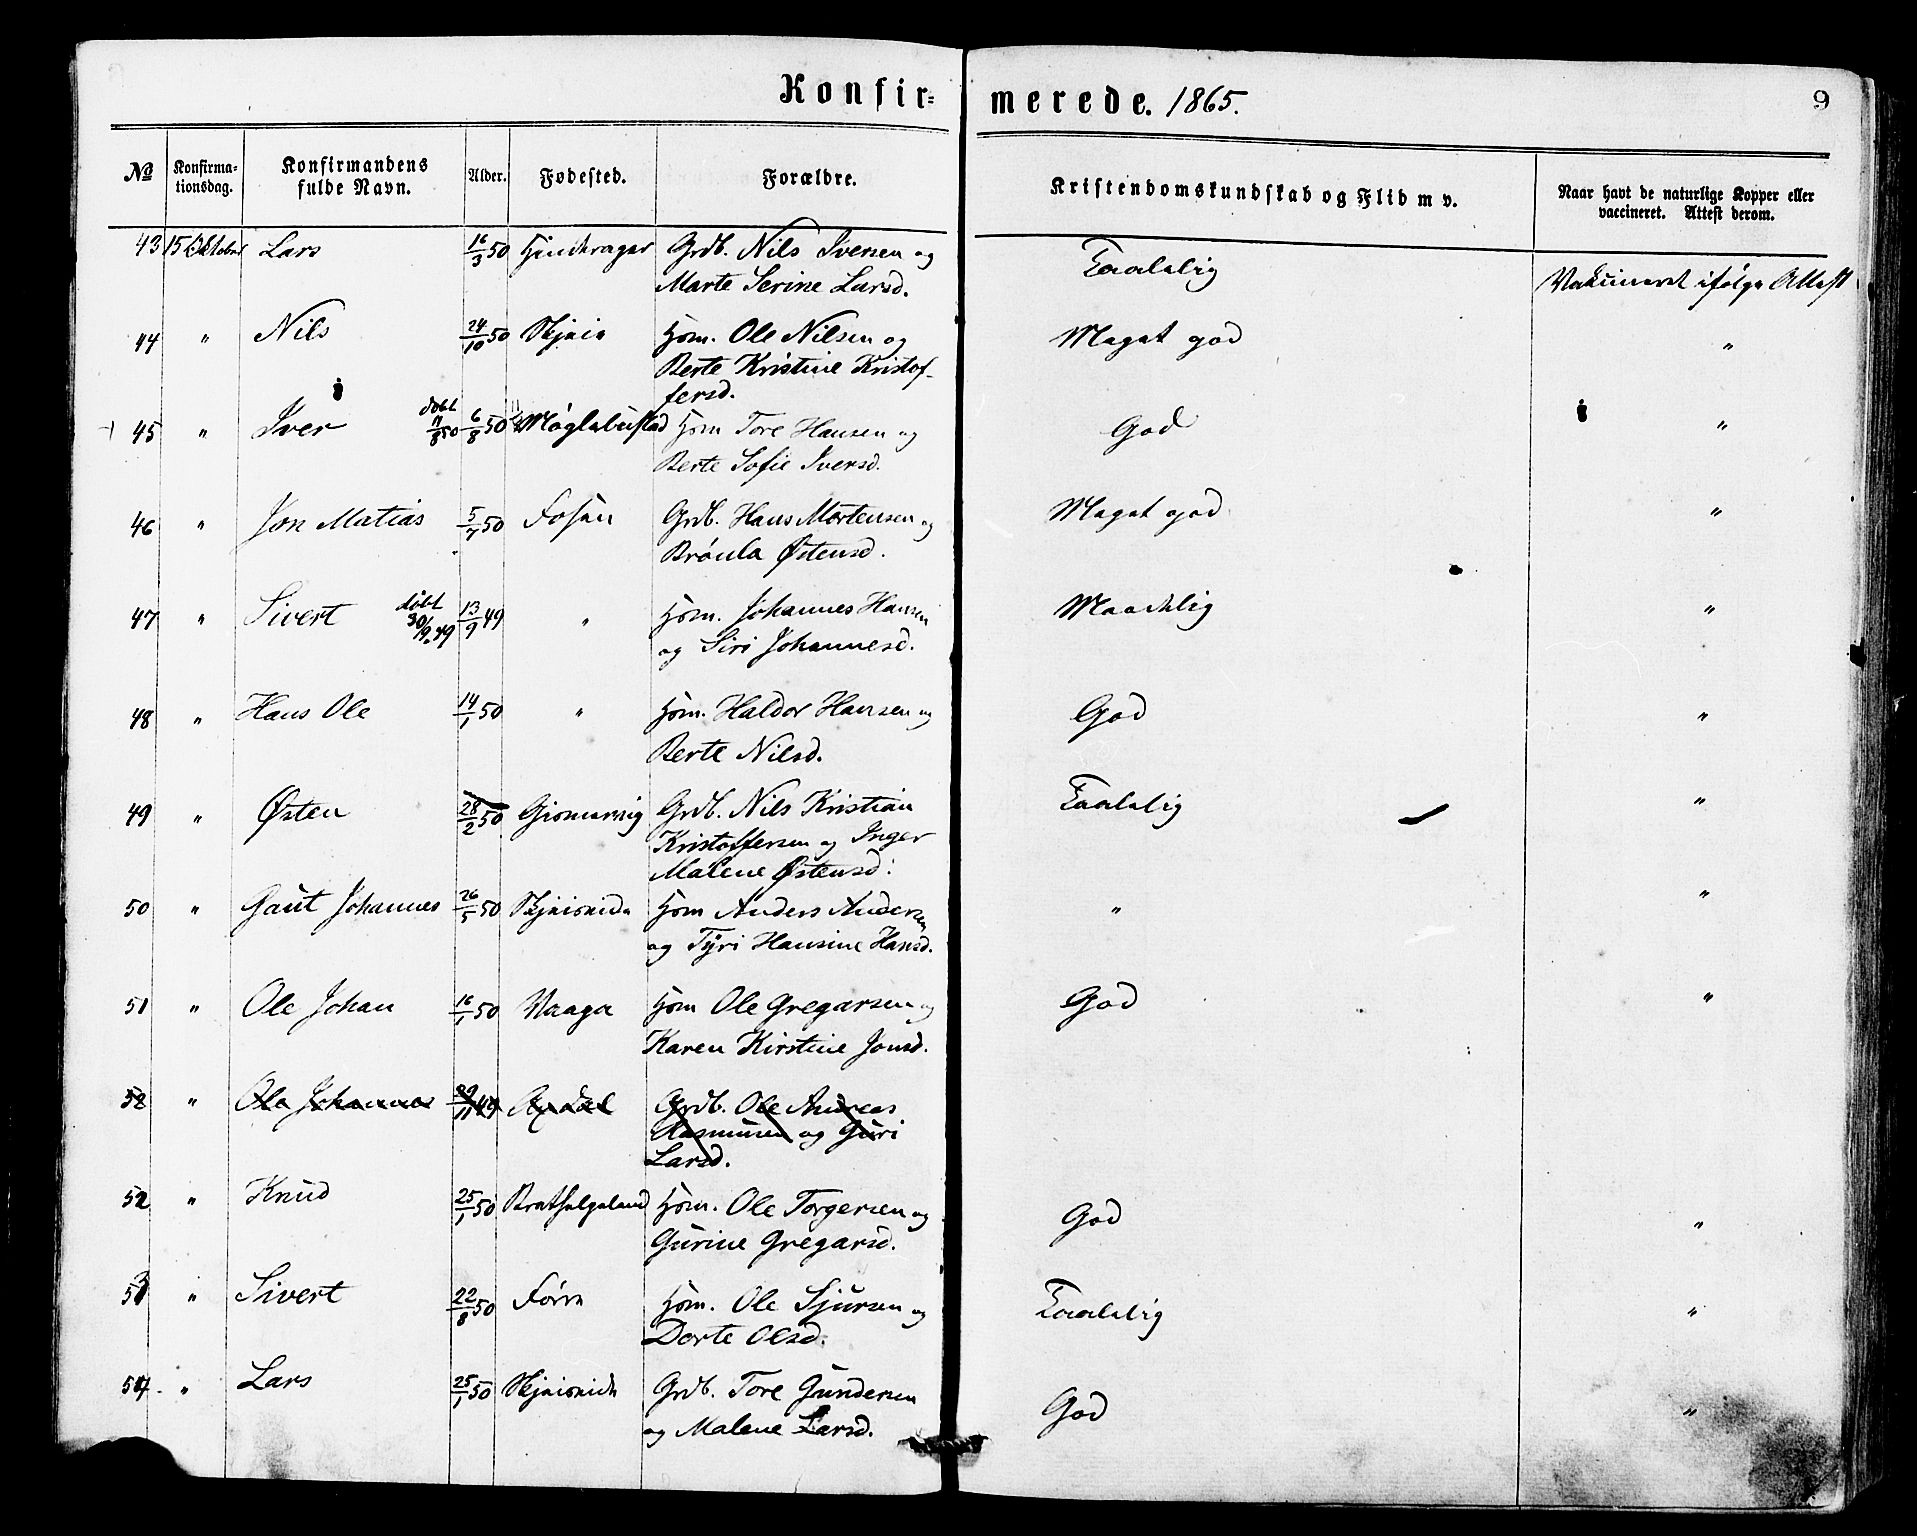 Konfir=merede. 1865. 9
№ Konfirma-tionsdag. Konfirmandens fulde Navn. Alder. Fødested. Forældre. Kristendomskundskab og Flid m v. Naar havt de naturlige Kopper eller vaccineret. Attest derom.
43 15 Oktober Lars 16/3 50 Grdb. Nils Iversen og Taalelig
Marte Serine Larsd. Vakcineret ifølge Attest
44 " Nils 24/10 50 Hjm. Ole Nilsen og Meget god "
Berte Kristine Kristof-
fersd.
døbt
45 " Iver 11/8 50 6/8 50 Møglebustad Hjm Tore Hansen og God "
Berte Sofie Iversd.
46 " Jon Matias 5/7 50 Fosen Grdb. Hans Mortensen og Meget god "
Brónla Østensd.
47 " Sivert døbt 30/9 49 13/9 49 " Hjm. Johannes Hansen Maadelig "
og Siri Johannesd.
48 " Hans Ole 14/1 50 " Hjm. Haldor Hansen og God "
Berte Nilsd.
49 " Østen 28/2 50 Gismarvig Grdb. Nils Kristian Taalelig "
Kristoffersen og Inger
Malene Østensd.
50 " Gaut Johannes 26/5 50 Hjm Anders Andersen " "
og Tyri Hansine Hansd.
51 " Ole Johan 16/1 50 Vaaga Hjm Ole Gregarsen og God "
Karen Kirstine Jonsd.
52 " Ole Johannes 29/11 49 Grdb. Ole Andreas
Rasmusen og Guri
Larsd.
52 " Knud 25/1 50 Brathelgeland Hjm. Ole Torgersen og God "
Gurine Gregarsd.
53 " Sivert 22/8 50 Førre Hjm. Ole Sjursen og Taalelig "
Dorte Olsd.
54 " Lars 25/1 50 Grdb. Tore Gundersen God "
og Malene Larsd.